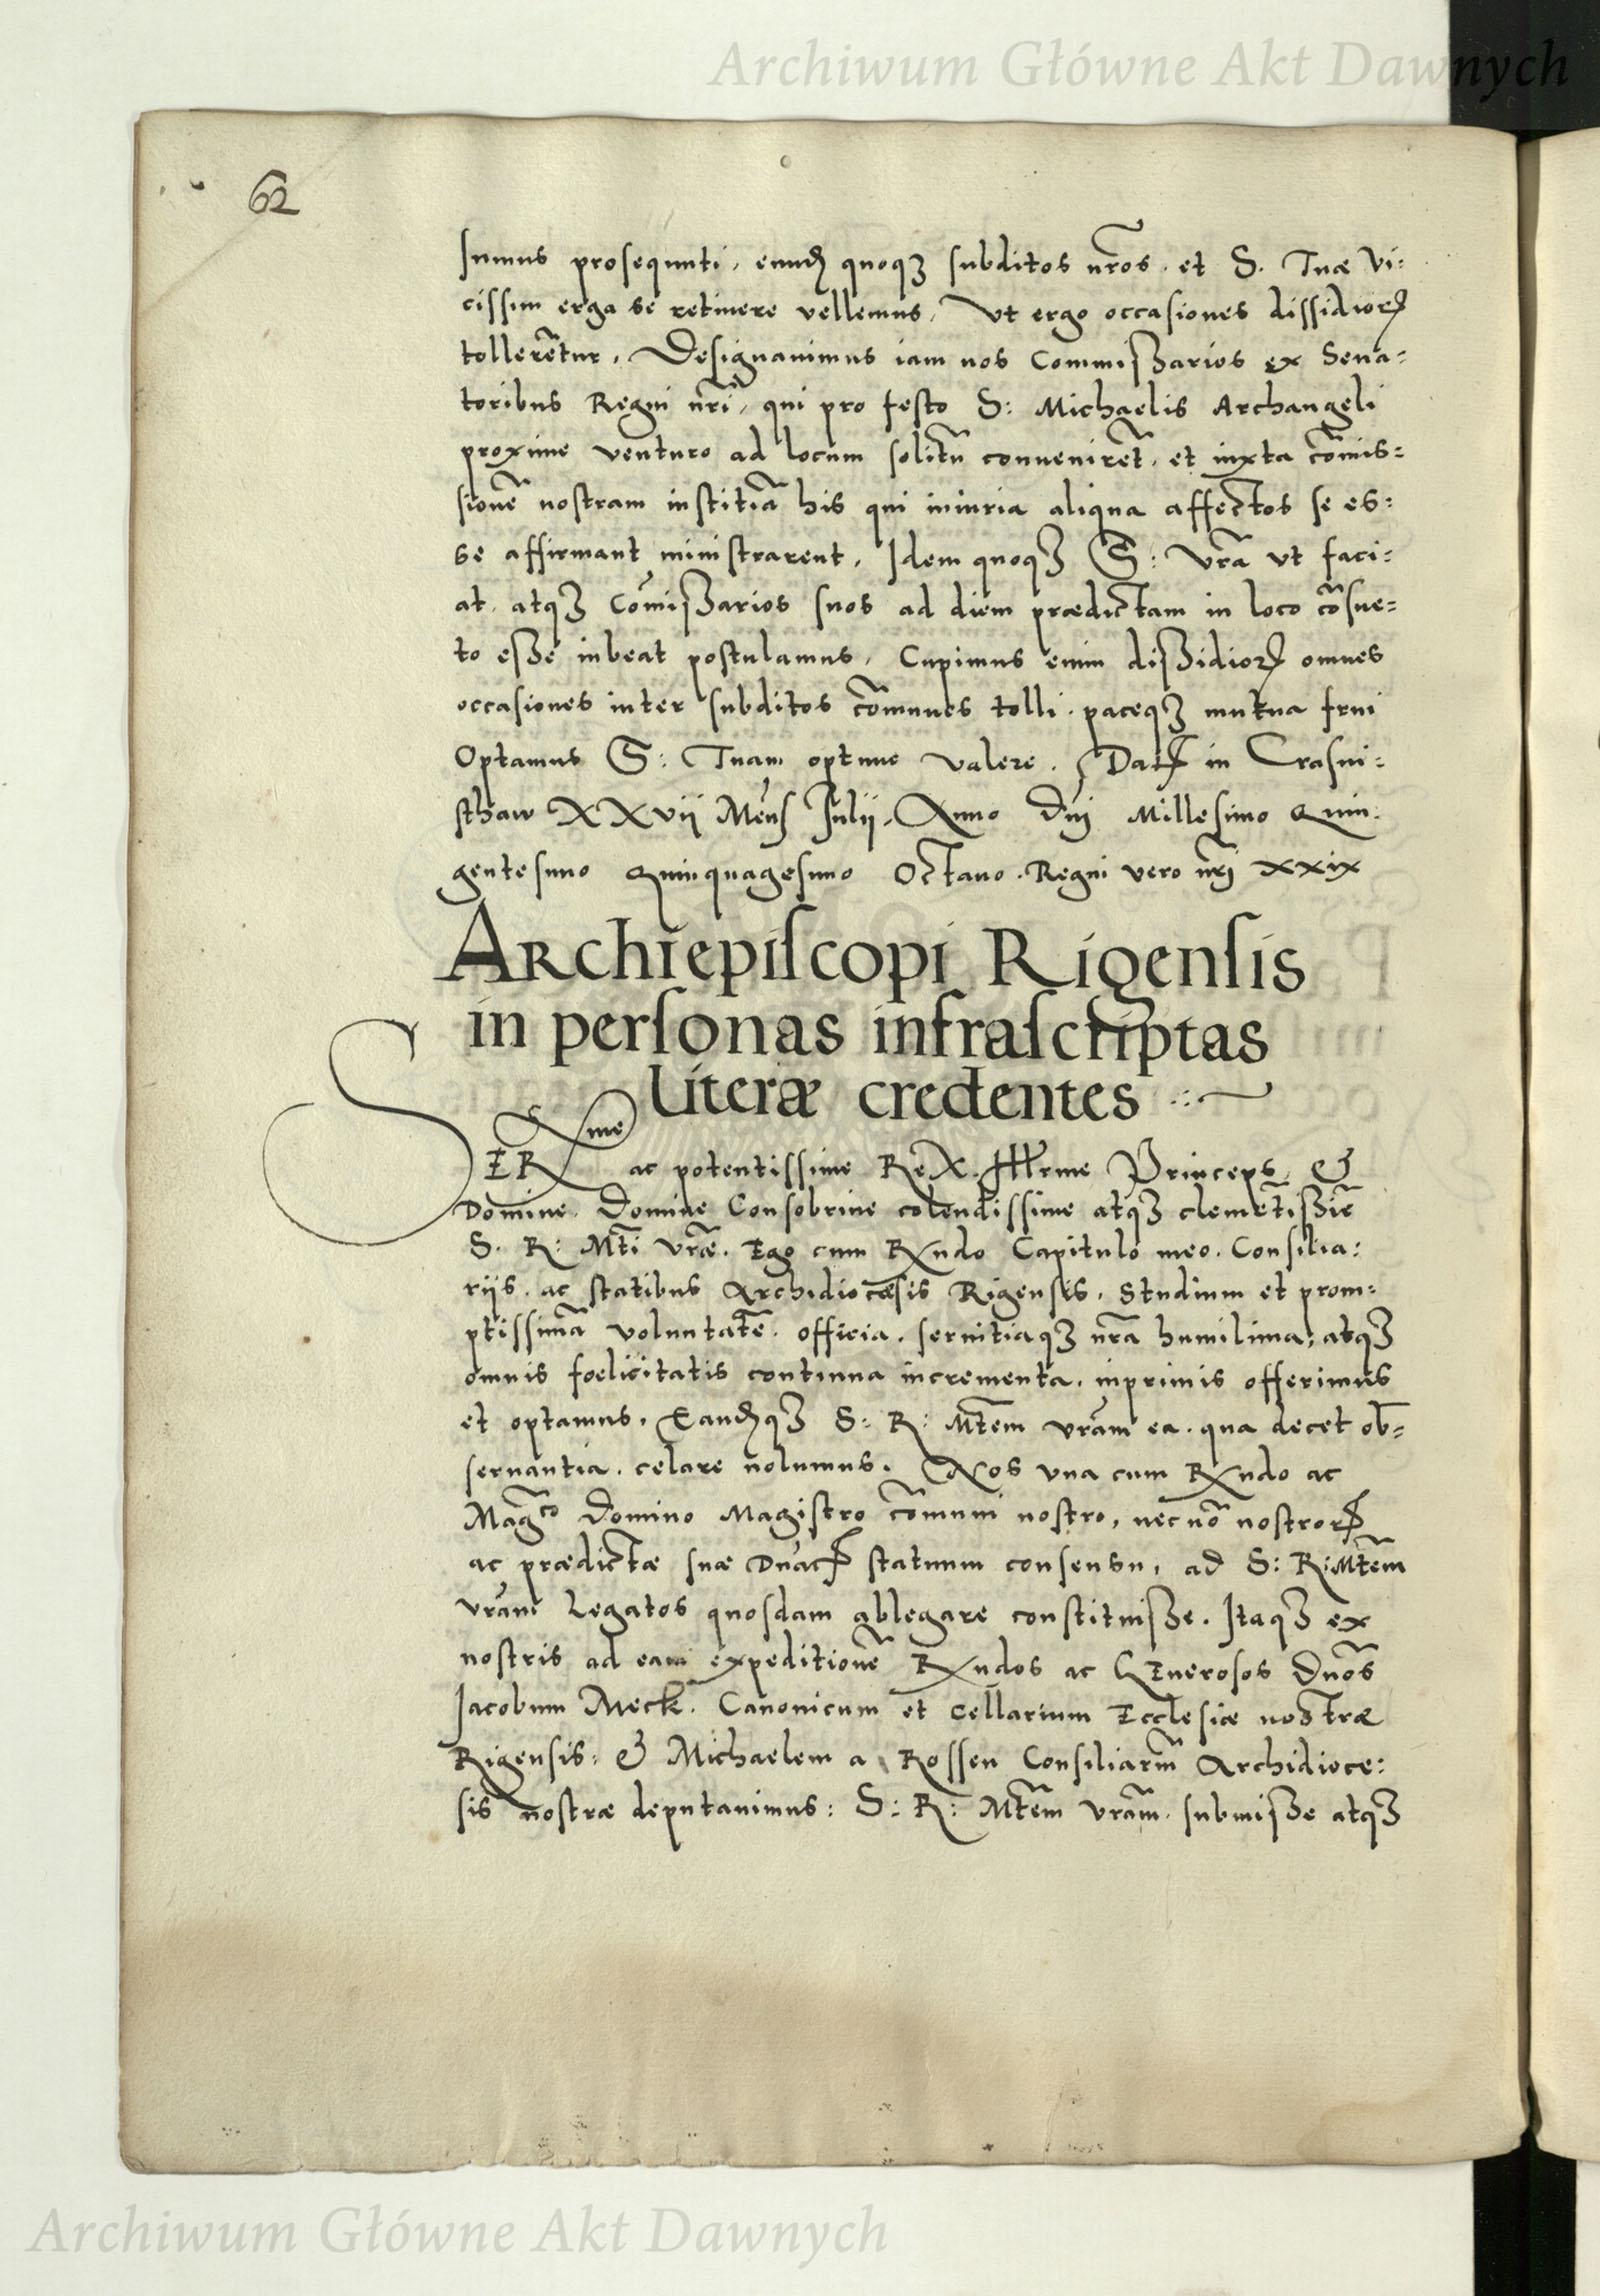 Archiwum Główne Akt Dawnych
62
sumus prosequuti, eund quoqȝ subditos nr̃os, et S. Tuæ vi=
cissim erga se retinere vellemus, Vt ergo occasiones dissidiorꝝ
tollerẽtur, Designauimus iam nos Commissarios ex Sena=
toribus Regni nr̃i, qui pro festo S: Michaelis Archangeli
proxime venturo ad locum solitũ conuenirẽt, et iuxta cõmis=
sionẽ nostram iustitiã his qui iniuria aliqua affectos se es=
se affirmant ministrarent, Idem quoqȝ S: Vr̃a vt faci=
at, atqȝ Cõmissarios suos ad diem prædictam in loco cõsue=
to esse iubeat postulamus, Cupimus enim dissidiorꝝ omnes
occasiones inter subditos cõmunes tolli, paceqȝ mutua frui
Optamus S: Tuam optime valere. Datꝝ in Crasni=
sthaw XXvij Meñs Julij, Anno Dñi Millesimo Quin=
gentesimo Quinquagesimo Octauo. Regni vero nr̃i xxix
Archiepiscopi Rigensis
in personas infrascriptas
literæ credentes
SERme ac potentissime Rex. Illrme Princeps, &
Domine, Domine Consobrine colendissime atqȝ clemẽtissiẽ
S. R: Mti vr̃æ. Ego cum Rndo Capitulo meo, Consilia=
rijs, ac statibus Archidiocæsis Rigensis, studium et prom=
ptissimã voluntatẽ, officia, seruitiaqȝ nr̃a humilima, atqȝ
omnis foelicitatis continua incrementa, inprimis offerimus
et optamus, Eandqȝ S: R: Mtem vr̃am ea, qua decet ob=
seruantia, celare nolumus. Nos vna cum Rndo ac
Magco Domino Magistro cõmuni nostro, necnõ nostrorꝝ
ac prædictæ suæ Dñatꝝ statuum consensu, ad S: R: Mtem
vr̃am Legatos quosdam ablegare constituisse. Itaqȝ ex
nostris ad eam expeditionẽ Rndos ac Generosos Dños
Jacobum Meck, Canonicum et Cellarium Ecclesiæ nostræ
Rigensis, & Michaelem a Rossen Consiliariũ Archidioce=
sis nostræ deputauimus: S: R: Mtem vr̃am, submisse atqȝ
Archiwum Główne Akt Dawnych